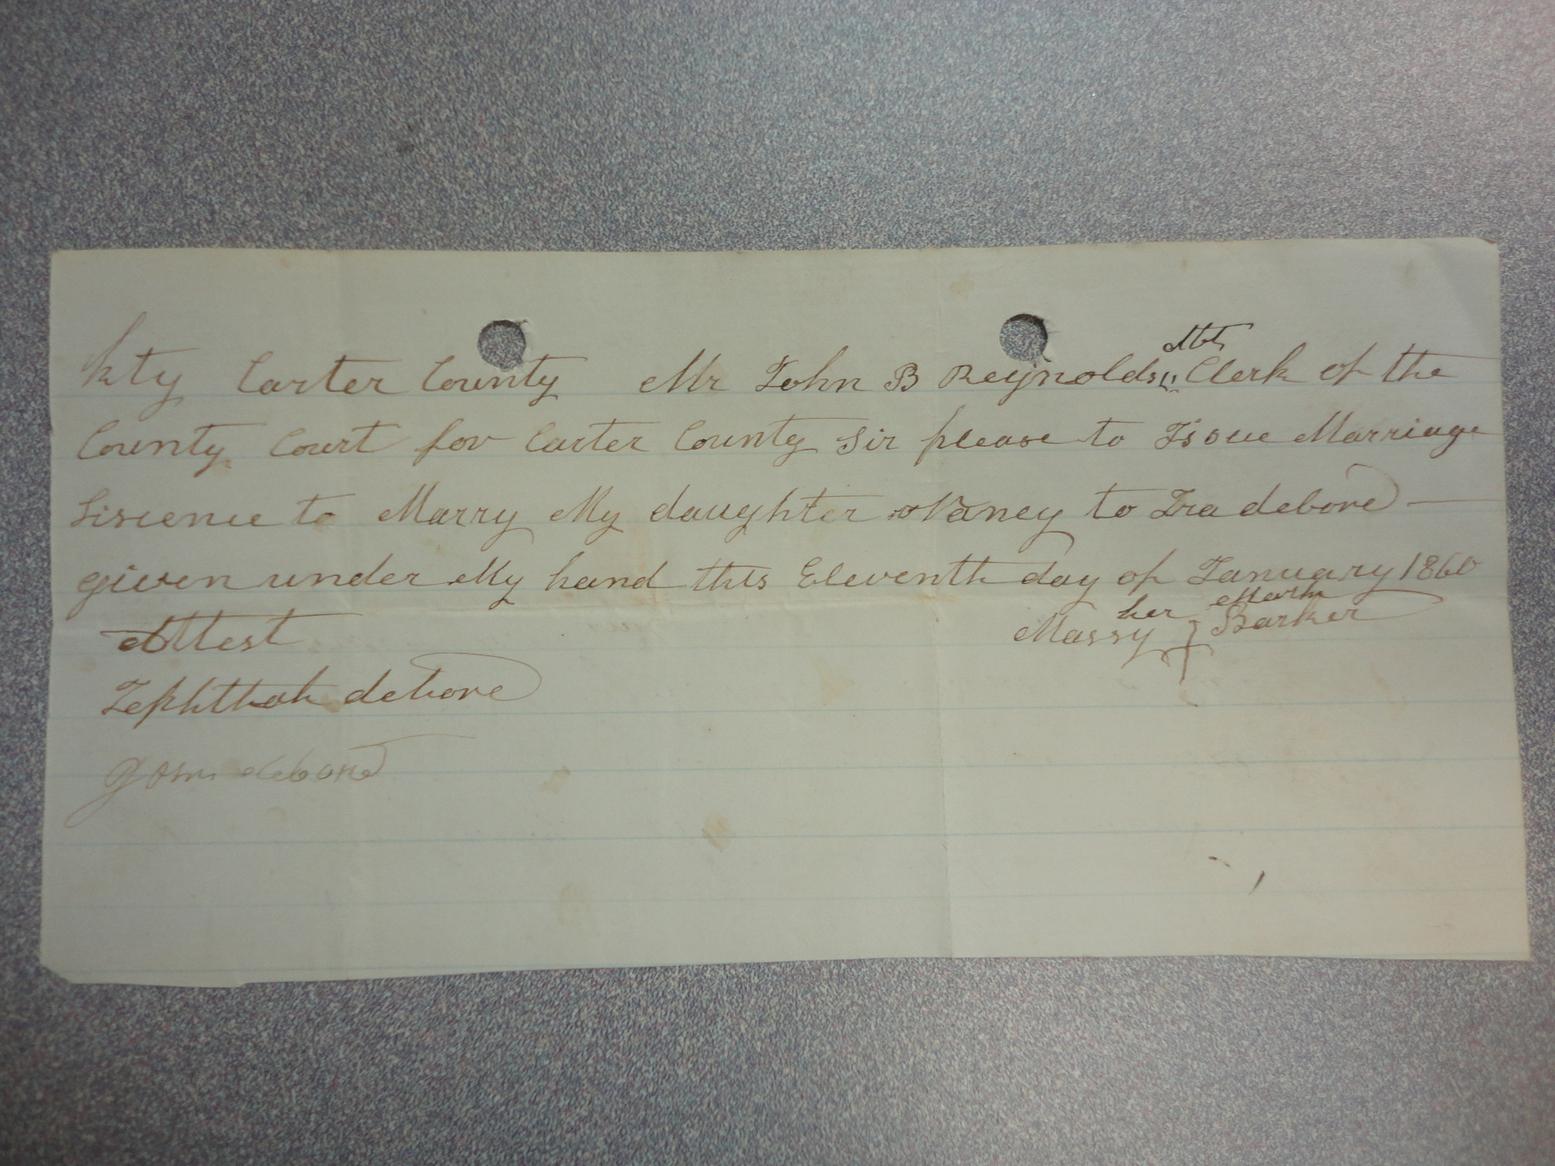 kty Carter County Mr John B Reynolds Clerk of the
County Court for Carter County Sir please to Issue Marriage
Liscence to Marry My daughter Nancy to Ira debord
given under My hand this Eleventh day of January 1860
her Mark
Attest Massy Barker
Jephthah debord
debord